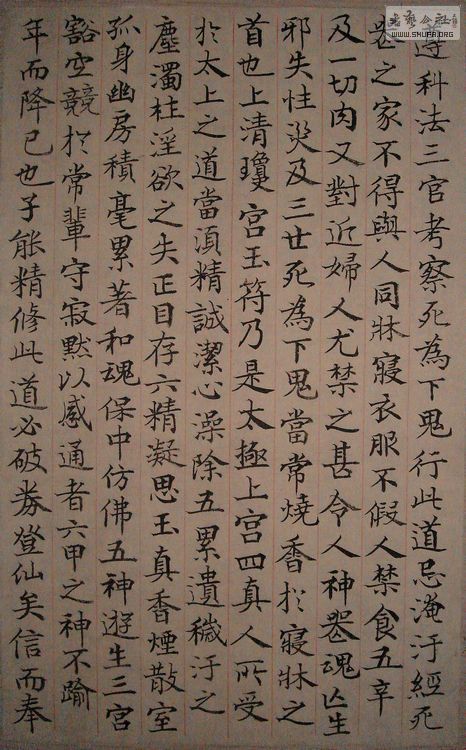 遵科法三官考察死為下鬼行此道忌淹汙經死
喪之家不得與人同牀寢衣服不假人禁食五辛
及一切肉又對近婦人尤禁之甚令人神喪魂亡生
邪失性災及三世死為下鬼當常燒香於寢牀之
首也上清瓊宮玉符乃是太極上宮四真人所受
於太上之道當須精誠潔心澡除五累遺穢汙之
塵濁杜淫欲之失正目存六精凝思玉真香煙散室
孤身幽房積毫累著和魂保中仿佛五神遊生三宮
豁空競於常輩守寂默以感通者六甲之神不踰
年而降已也子能精修此道必破券登仙矣信而奉
WWW.SHUFA.ORG